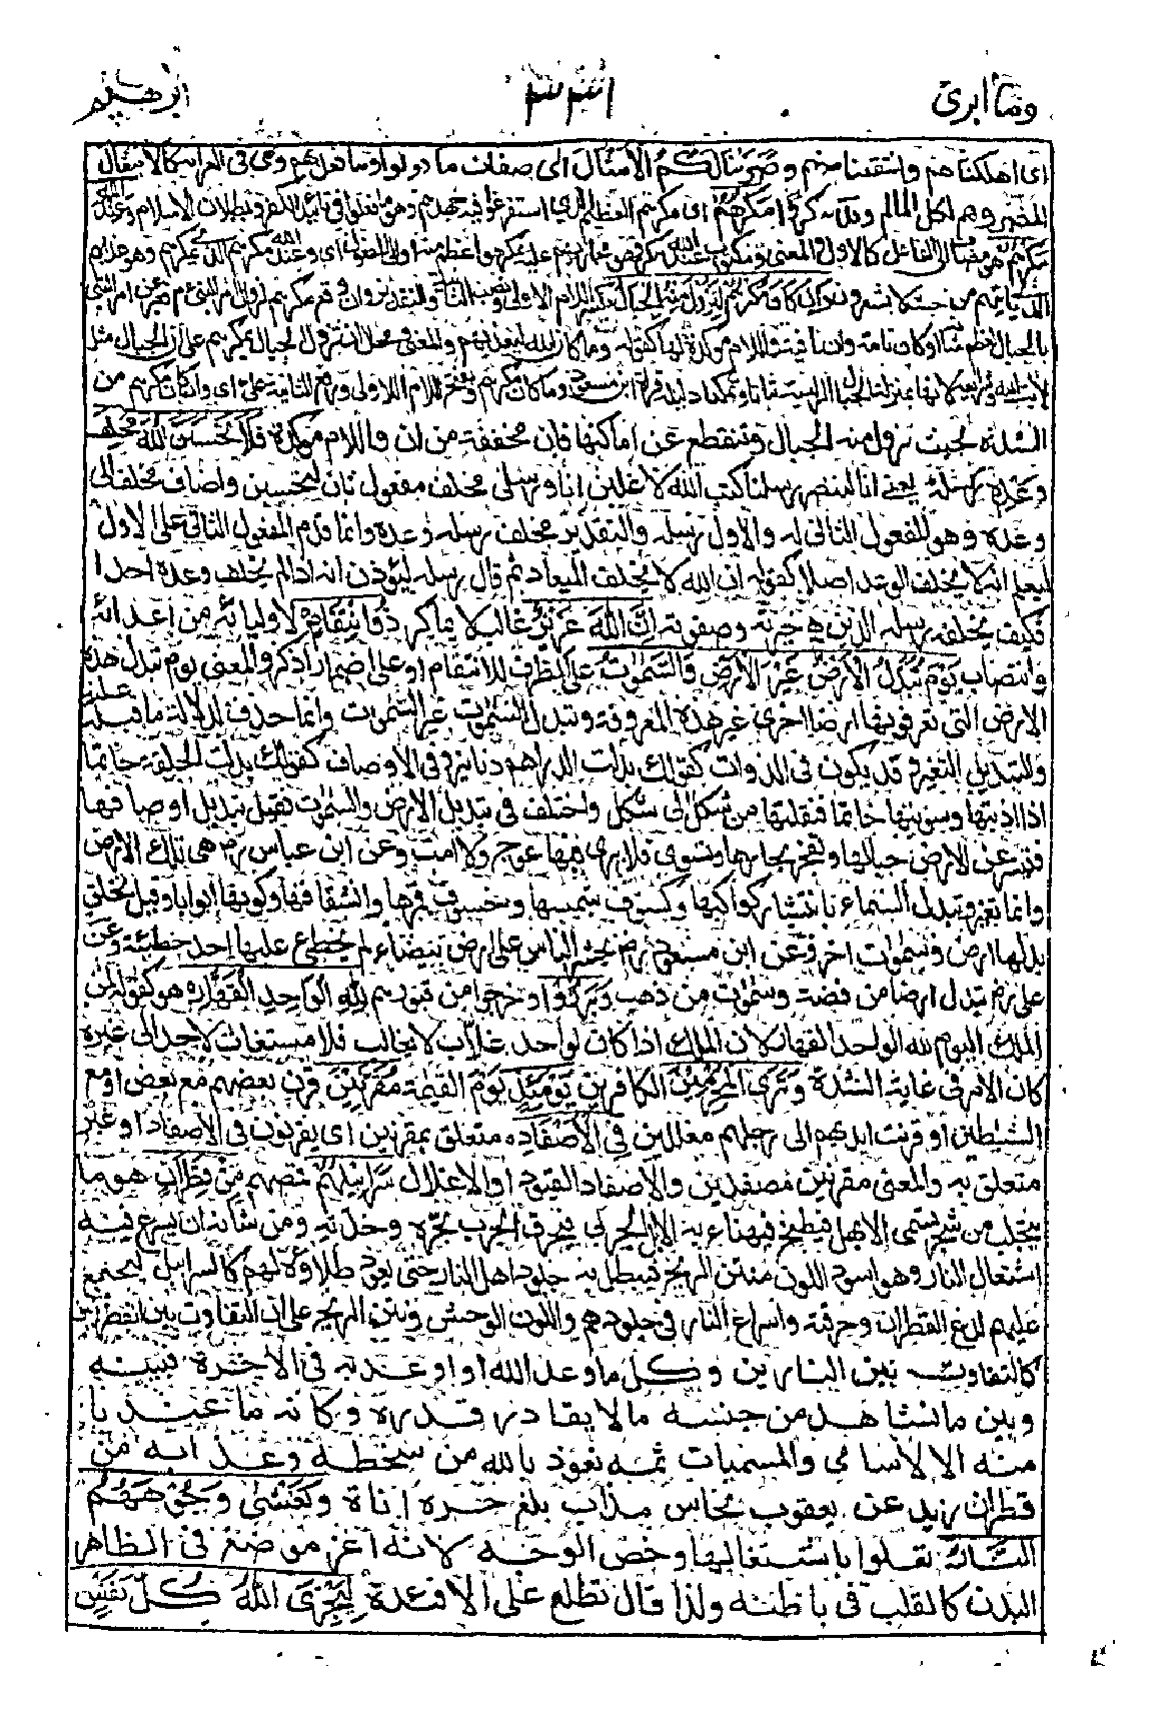 وما ابرئ ٣٣١ ابرهيم
اى اهلكناهم وانتقمنا منهم وضربنا لكم الامثال اى صفات ما فعلوا وما فعل بهم وهى فى الغرابة كالامثال
المضروبة لكل ظالم وقد مكروا مكرهم اى مكرهم العظيم الذى استفرغوا فيه جهدهم وهو ما فعلوه من تاييد الكفر وبطلان الاسلام وعند الله
مكرهم وهو مضاف الى الفاعل كالاول والمعنى ومكتوب عند الله مكرهم فهو مجازيهم عليه بمكر هو اعظم منه او الى المفعول اى وعند الله مكرهم الذى يمكرهم به وهو عذابهم
الذى ياتيهم من حيث لا يشعرون وان كان مكرهم لتزول منه الجبال بكسر اللام الاولى ونصب الثانية والتقدير وان وقع مكرهم لزوال امر النبى ص فعبر عن امر النبى
بالجبال لعظم شانه وكان تامة وان نافية واللام مؤكدة لها كقوله وما كان الله ليعذبهم والمعنى ومحال ان تزول الجبال بمكرهم على ان الجبال مثل
لايات الله وشرايعه لانها بمنزلة الجبال الراسية ثباتا وتمكنا دليله قراءة ابن مسعود وما كان مكرهم وبفتح اللام الاولى ورفع الثانية على اى وان كان مكرهم من
الشدة بحيث تزول منه الجبال وتنقطع عن اماكنها فان مخففة من ان واللام مؤكدة فلا تحسبن الله مخلف
وعده رسله يعنى انا لننصر رسلنا كتب الله لاغلبن انا ورسلى مخلف مفعول ثان لتحسبن واضاف مخلف الى
وعده وهو المفعول الثانى له والاول رسله والتقدير مخلف رسله وعده وانما قدم المفعول الثانى على الاول
ليعلم انه لا يخلف الوعد اصلا كقوله ان الله لا يخلف الميعاد ثم قال رسله ليؤذن انه اذا لم يخلف وعده احدا
فكيف يخلفه رسله الذين هم خيرته وصفوته ان الله عزيز غالب لا يماكر ذو انتقام لاوليائه من اعدائه
وانتصاب يوم تبدل الارض غير الارض والسموت على الظرف للانتقام او على اضمار اذكر والمعنى يوم تبدل هذه
الارض التى تعرفونها ارضا اخرى غير هذه المعروفة وتبدل السموت غير السموت وانما حذف لدلالة ما قبله عليه
والتبديل التغيير وقد يكون فى الذوات كقولك بدلت الدراهم دنانير وفى الاوصاف كقولك بدلت الحلقة خاتما
اذا اذبتها وسويتها خاتما فنقلتها من شكل الى شكل واختلف فى تبديل الارض والسموت فقيل تبديل اوصافها
فتسير عن الارض جبالها وتفجر بحارها وتسوى فلا يرى فيها عوج ولا امت وعن ابن عباس رض هى تلك الارض
وانما تغير وتبدل السماء بانتثار كواكبها وكسوف شمسها وخسوف قمرها وانشقاقها وكونها ابوابا وقيل تخلق
بدلها ارض وسموات اخر وعن ابن مسعود رض يحشر الناس على ارض بيضاء لم يخطئ عليها احد خطيئة وعن
على رض تبدل ارضا من فضة وسموت من ذهب وبرزوا وخرجوا من قبورهم لله الواحد القهار هو كقوله لمن
الملك اليوم لله الواحد القهار لان الملك اذا كان لواحد غلاب لا يغالب فلا مستغاث لاحد الى غيره
كان الامر فى غاية الشدة وترى المجرمين الكافرين يومئذ يوم القيمة مقرنين قرن بعضهم مع بعض او مع
الشيطين او قرنت ايديهم الى ارجلهم مغللين فى الاصفاد متعلق بمقرنين اى يقرنون فى الاصفاد او غير
متعلق به والمعنى مقرنين مصفدين والاصفاد القيود او الاغلال سرابيلهم قمصهم من قطران هو ما
يتحلب من شجر يسمى الابهل فيطبخ فيهنأ به الابل الجربى فيحرق الجرب بحره وحدته ومن شانه ان يسرع فيه
اشتعال النار وهو اسود اللون منتن الريح فيطلى به جلود اهل النار حتى يعود طلاؤه لهم كالسرابيل ليجتمع
عليهم لدغ القطران وحرقته واسراع النار فى جلودهم واللون الوحش ونتن الريح على ان التفاوت بين القطرانين
كالتفاوت بين النارين وكل ما وعد الله او اوعد به فى الاخرة فبينه
وبين ما نشاهد من جنسه ما لا يقادر قدره وكانه ما عندنا
منه الا الاسامى والمسميات ثمه نعوذ بالله من سخطه وعذابه من
قطران زيد عن يعقوب نحاس مذاب بلغ حره اناه وتغشى وجوههم
النار تعلوا باشتعالها وخص الوجه لانه اعز موضع فى الظاهر
البدن كالقلب فى باطنه ولذا قال تطلع على الافئدة ليجزى الله كل نفس